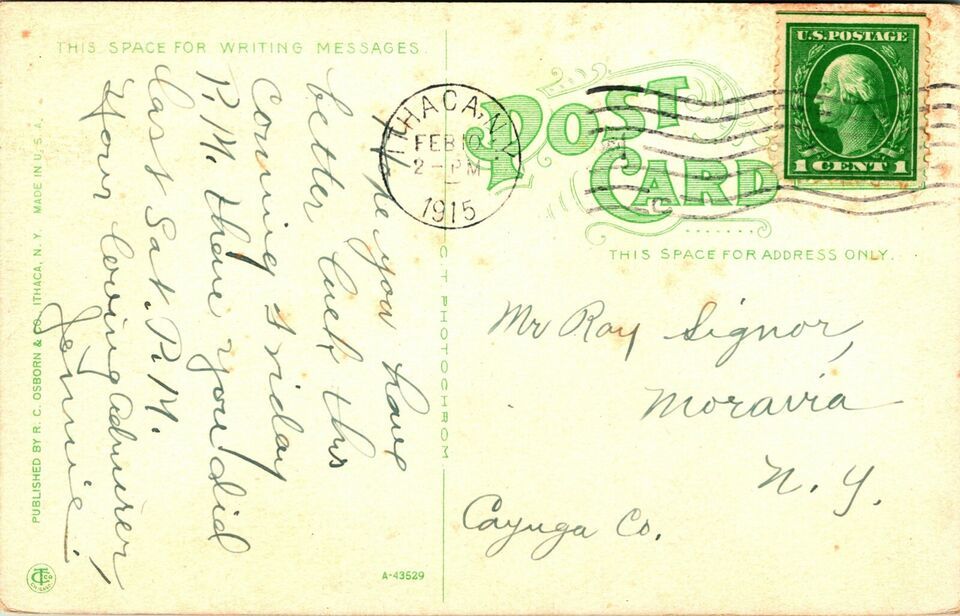 THIS SPACE FOR WRITING MESSAGES.
I hope you have
better luck this
coming Friday
P.M. than you did
last Sat. P.M.
Your loving admirer,
Jennie.
PUBLISHED BY R. C. OSBORN & CO., ITHACA, N. Y. MADE IN U. S. A.
CT PHOTOCHROM
A-43529
ITHACA, N.Y.
FEB 10
2 - PM
1915
POST CARD
U.S. POSTAGE
1 CENT 1
THIS SPACE FOR ADDRESS ONLY.
Mr Ray Signor,
Moravia
N. Y.
Cayuga Co.